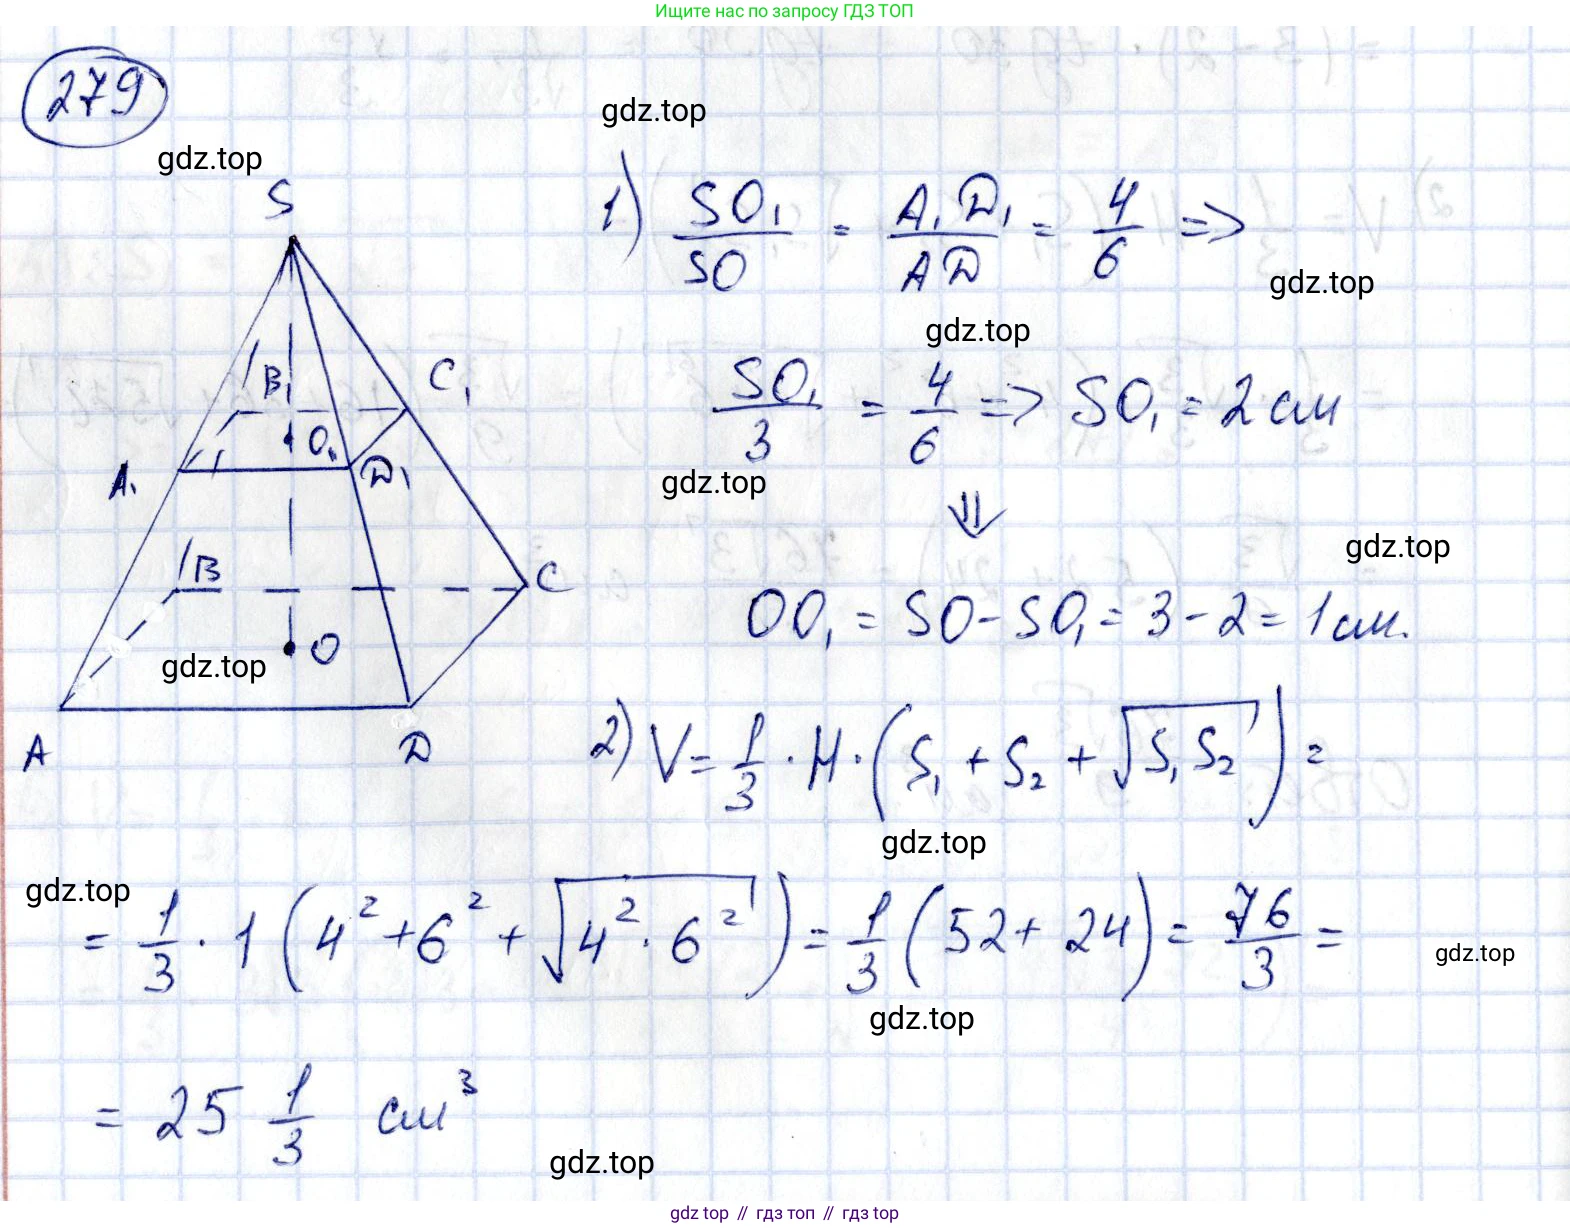 Ищите нас по запросу ГДЗ ТОП
279
gdz.top
gdz.top
S
1) SO₁/SO = A₁D₁/AD = 4/6 =>
gdz.top
gdz.top
B₁ C₁
SO₁/3 = 4/6 => SO₁ = 2 см
O₁
A₁ D₁
gdz.top
⇓
gdz.top
B C
OO₁ = SO - SO₁ = 3 - 2 = 1 см.
O
gdz.top
A D
2) V = 1/3 · H · (S₁ + S₂ + √(S₁S₂)) =
gdz.top
gdz.top
= 1/3 · 1 (4² + 6² + √(4² · 6²)) = 1/3 (52 + 24) = 76/3 =
gdz.top
gdz.top
= 25 1/3 см³
gdz.top
gdz top // гдз топ // гдз top